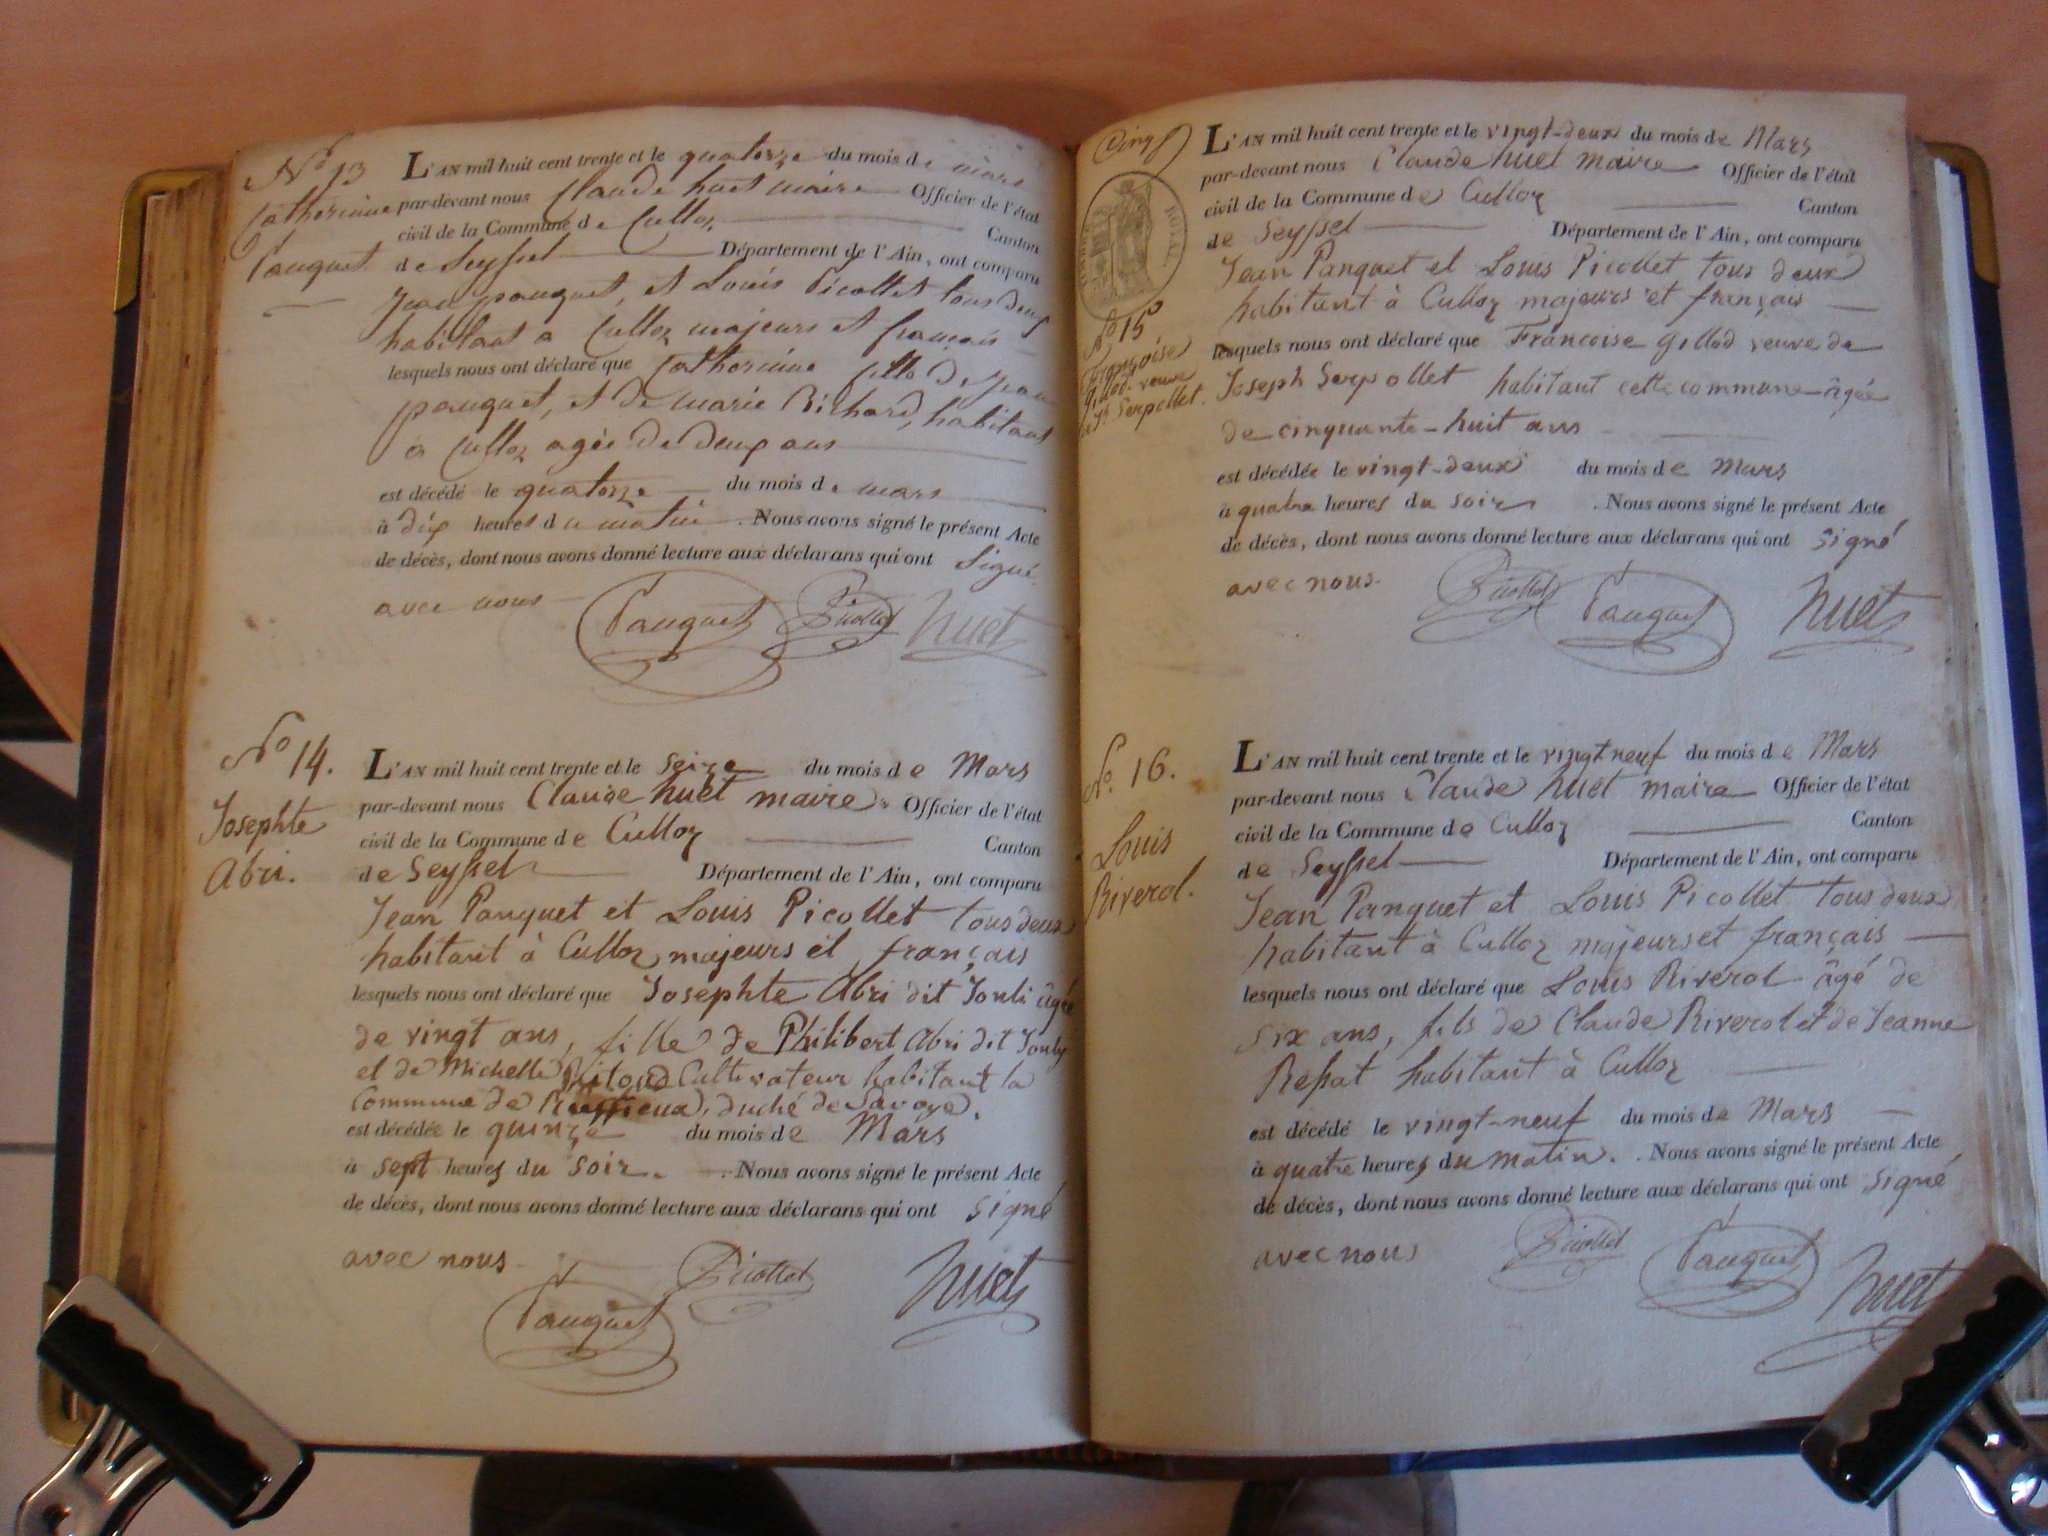 No 13
Catherinne
Pauquet
L'AN mil huit cent trente et le quatorze du mois de mars
par-devant nous Claude huet maire Officier de l'état
civil de la Commune de Culloz Canton
de Seyssel Département de l'Ain, ont comparu
Jean pauquet, et Louis Picollet tous deux
habitant a Culloz majeurs et francais
lesquels nous ont déclaré que Catherinne fille de Jean
pauquet, et de marie Richard, habitant
a Culloz agée de deux ans
est décédé le quatorze du mois de mars
à dix heures du matin. Nous avons signé le présent Acte
de décès, dont nous avons donné lecture aux déclarans qui ont signé
avec nous
Pauquet Picollet huet
No 14.
Josephte
Abri.
L'AN mil huit cent trente et le seize du mois de Mars
par-devant nous Claude huet maire Officier de l'état
civil de la Commune de Culloz Canton
de Seyssel Département de l'Ain, ont comparu
Jean Pauquet et Louis Picollet tous deux
habitant à Culloz majeurs et français
lesquels nous ont déclaré que Josephte Abri dit Jouli âgée
de vingt ans, fille de Philibert Abri dit Jouly
et de Michelle Cultivateur habitant la
Commune de Ruffieux, duché de Savoye.
est décédée le quinze du mois de Mars
à sept heures du soir. Nous avons signé le présent Acte
de décès, dont nous avons donné lecture aux déclarans qui ont signé
avec nous
Pauquet Picollet huet
Cinq
ROYAL
No 15
Françoise
gillod veuve
de Jh Serpollet.
L'AN mil huit cent trente et le vingt-deux du mois de Mars
par-devant nous Claude huet maire Officier de l'état
civil de la Commune de Culloz Canton
de Seyssel Département de l'Ain, ont comparu
Jean Pauquet et Louis Picollet tous deux
habitant à Culloz majeurs et français
lesquels nous ont déclaré que Francoise gillod veuve de
Joseph Serpollet habitant cette commune âgée
de cinquante-huit ans
est décédée le vingt-deux du mois de Mars
à quatre heures du soir. Nous avons signé le présent Acte
de décès, dont nous avons donné lecture aux déclarans qui ont signé
avec nous.
Picollet Pauquet huet
No. 16.
Louis
Riverol.
L'AN mil huit cent trente et le vingt neuf du mois de Mars
par-devant nous Claude huet maire Officier de l'état
civil de la Commune de Culloz Canton
de Seyssel Département de l'Ain, ont comparu
Jean Pauquet et Louis Picollet tous deux
habitant à Culloz majeurs et français
lesquels nous ont déclaré que Louis Riverol âgé de
six ans, fils de Claude Riverol et de Jeanne
Repat habitant à Culloz
est décédé le vingt-neuf du mois de Mars
à quatre heures du matin. Nous avons signé le présent Acte
de décès, dont nous avons donné lecture aux déclarans qui ont signé
avec nous
Picollet Pauquet huet